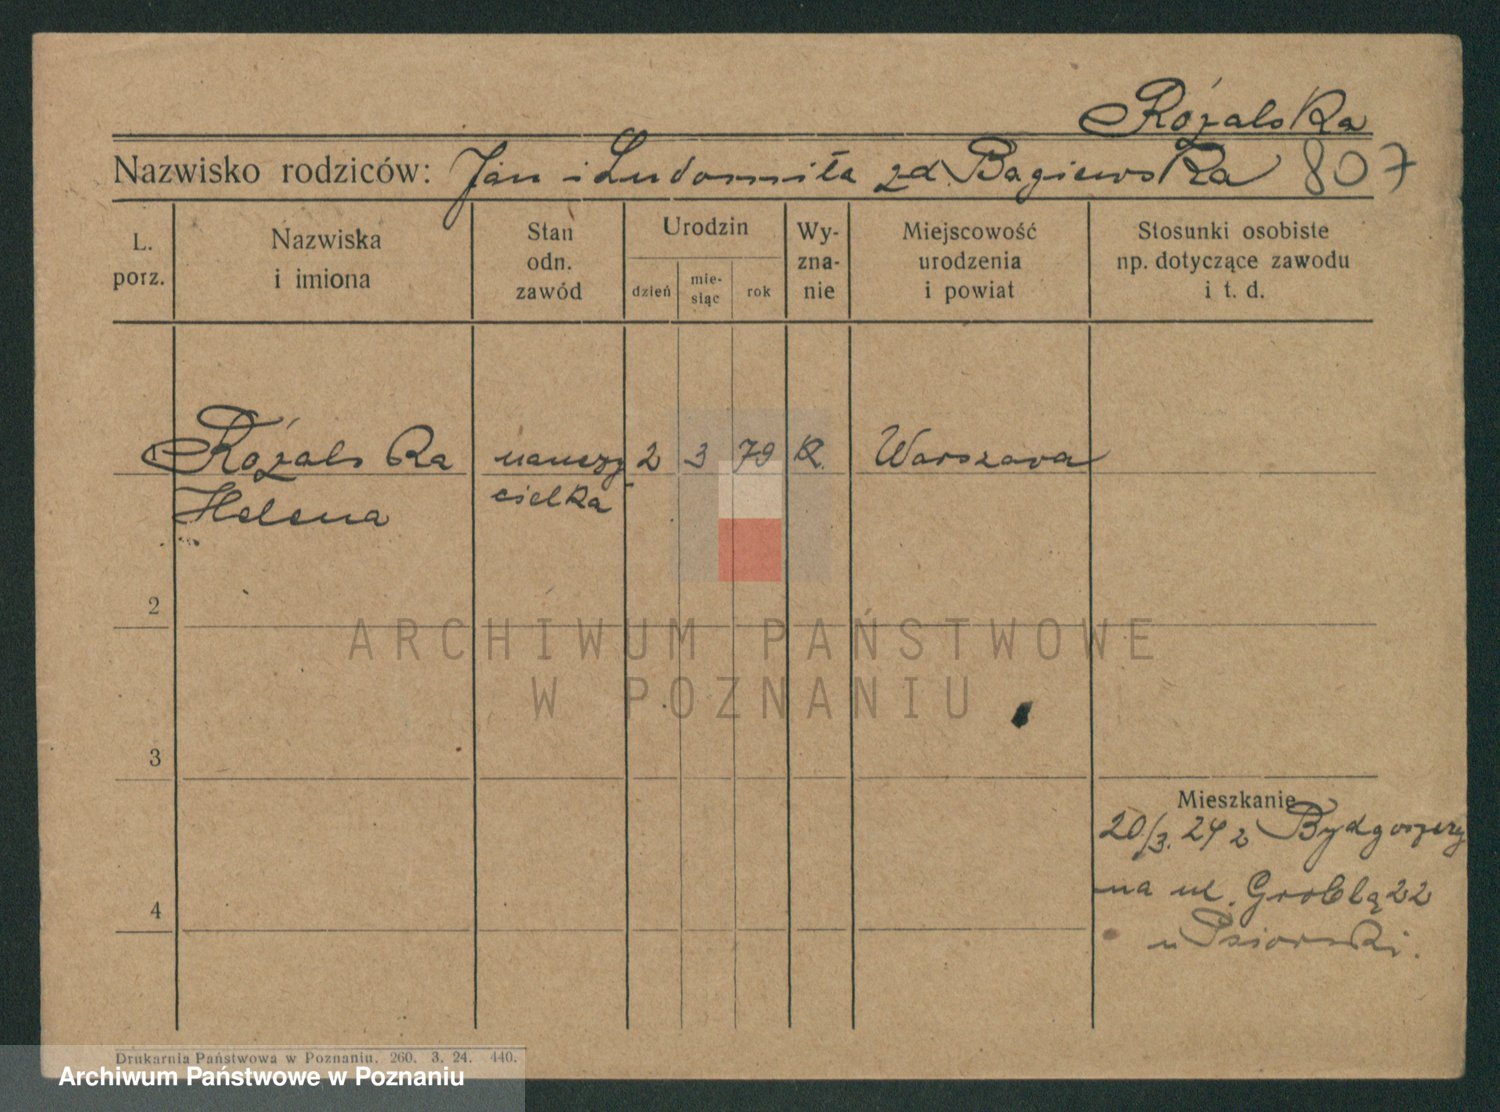 Różalska
Nazwisko rodziców: Jan i Ludomiła zd. Bagiewska 807
L. porz.
Nazwiska i imiona
Stan odn. zawód
Urodzin
dzień
mie-siąc
rok
Wy-zna-nie
Miejscowość urodzenia i powiat
Stosunki osobiste np. dotyczące zawodu i t. d.
1 Różalska nauczy 2 3 79 R. Warszawa
Helena cielka
2
ARCHIWUM PAŃSTWOWE
W POZNANIU
3
Mieszkanie
20/3. 24 z Bydgoszczy
na ul. Groblą 22
4
u
Drukarnia Państwowa w Poznaniu. 260. 3. 24. 440.
Archiwum Państwowe w Poznaniu